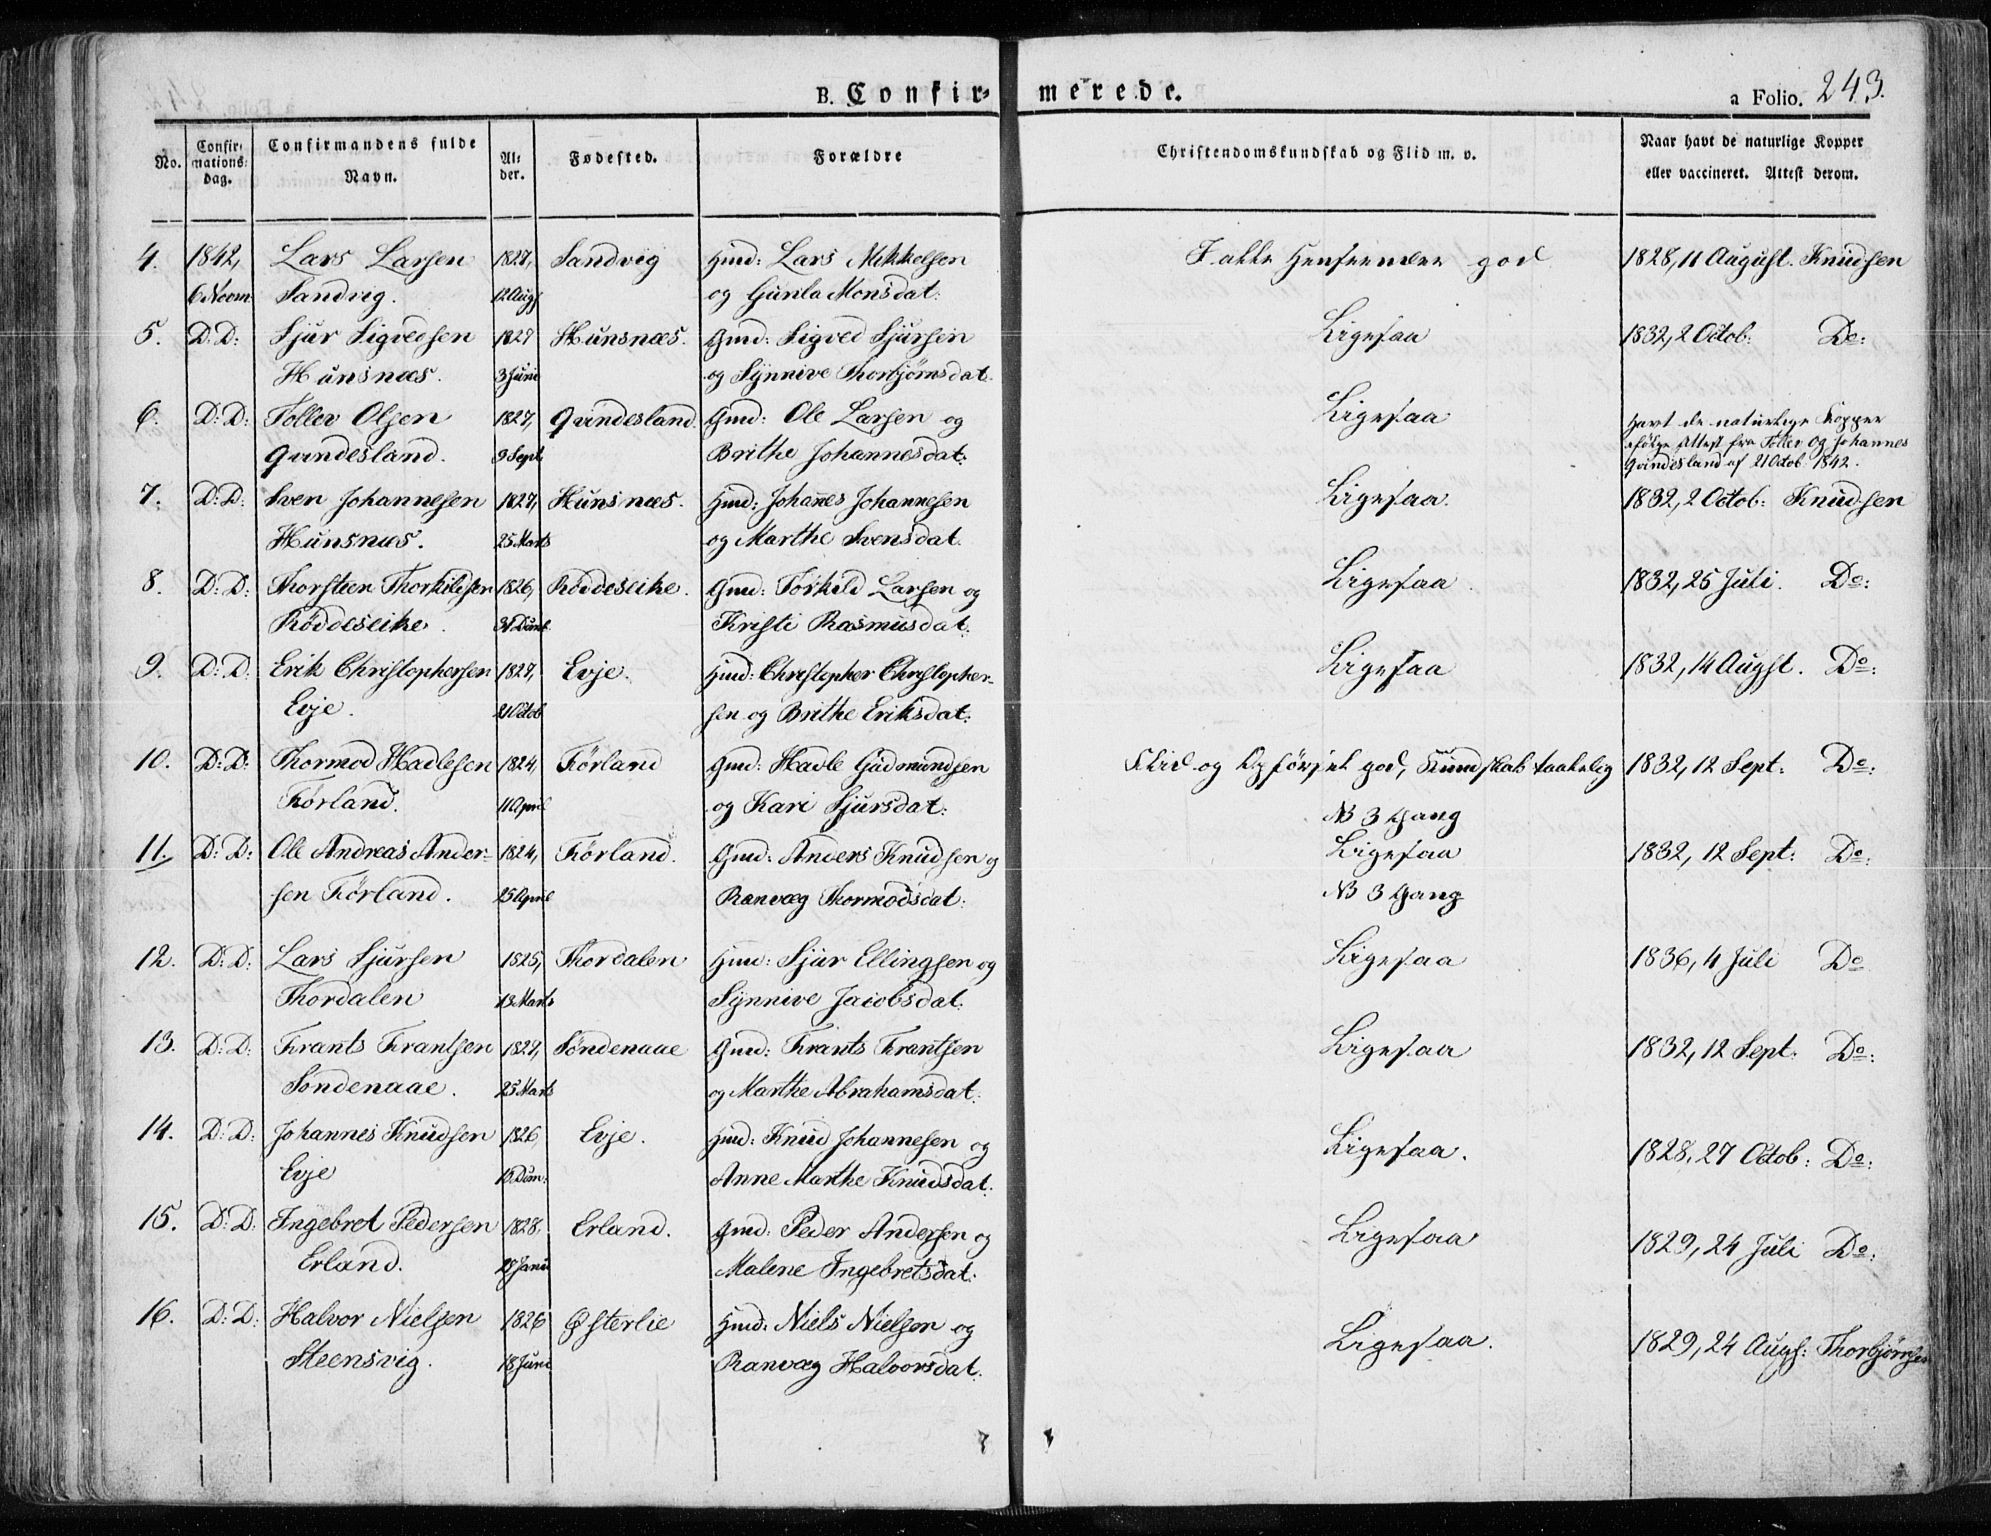 B. Confir- merede.
a Folio. 243.
No.
Confir-
mations-
dag.
Confirmandens fulde
Navn.
Al-
der.
Fødested.
Forældre
Christendomskundskab og Flid m. v.
Naar havt de naturlige Kopper
eller vaccineret. Attest derom.
4. 1842, Lars Larsen 1827, Sandvig Hmd: Lars Mikkelsen I alle Henseender god 1828, 11 August. Knudsen
6 Novm Sandvig. 12 Aug og Gunla Monsdat:
5. D: D: Sjur Sigvedsen 1827 Hunsnæs. Gmd: Sigved Sjursen Ligesaa 1832, 2 Octob: Do:
Hunsnæs. 3 Juni og Synnive Thorbjørnsdat.
6. D: D: Toller Olsen 1827, Qvindesland. Gmd: Ole Larsen og Ligesaa Havt de naturlige Kopper
Qvindesland. 9 Sept. Brithe Johannesdat: ifølge Attest fra Toller og Johannes
Qvindesland af 21 Octob. 1842.
7. D: D: Sven Johannesen 1827, Hunsnæs. Hmd: Johannes Johannesen Ligesaa. 1832, 2 Octob: Knudsen
Hunsnæs. 25 Marts og Marthe Svensdat.
8. D: D: Thorsteen Thorkildsen 1826, Röddeseike. Gmd: Torkild Larsen og Ligesaa. 1832, 25 Juli. Do:
Röddeseike. Kristi Rasmusdat:
9. D: D: Erik Christophersen 1827, Evje. Hmd: Christopher Christopher- Ligesaa 1832, 14 Augst. Do:
Evje. 21 Octob sen og Brithe Eriksdat:
10. D: D: Thormod Hadlesen 1824, Førland Gmd: Hadle Gudmundsen Flid og Opførsel god, Kundskab taalelig 1832, 12 Sept: Do:
Førland. 11 April og Kari Sjursdat: NB 3 Gang
11. D: D: Ole Andreas Ander- 1824, Førland. Gmd: Anders Knudsen og Ligesaa 1832, 12 Sept: Do:
sen Førland. 25 April Ranvæg Thormodsdat: NB 3 Gang
12. D: D: Lars Sjursen 1825, Thordalen Hmd: Sjur Ellingsen og Ligesaa 1836, 4 Juli Do
Thordalen 13 Marts Synnive Jacobsdat:
13. D: D: Frants Frantsen 1827, Söndenaae Gmd: Frants Frantsen Ligesaa 1832, 12 Sept: Do:
Söndenaae. 25 Marts og Marthe Abrahamsdat:
14. D: D: Johannes Knudsen 1826, Evje. Hmd: Knud Johannesen og Ligesaa. 1828, 27 Octob: Do:
Evje Anne Marthe Knudsdat:
15. D: D: Ingebret Pedersen 1828, Erland. Gmd: Peder Andersen og Ligesaa 1829, 24 Juli Do:
Erland. Malene Ingebretsdat:
16. D: D: Halvor Nielsen 1826 Østerlie Hmd: Niels Nielsen og Ligesaa. 1829, 24 Augs: Thorbjørnsen
Steensvig. 18 Juni Ranvæg Halvorsdat: